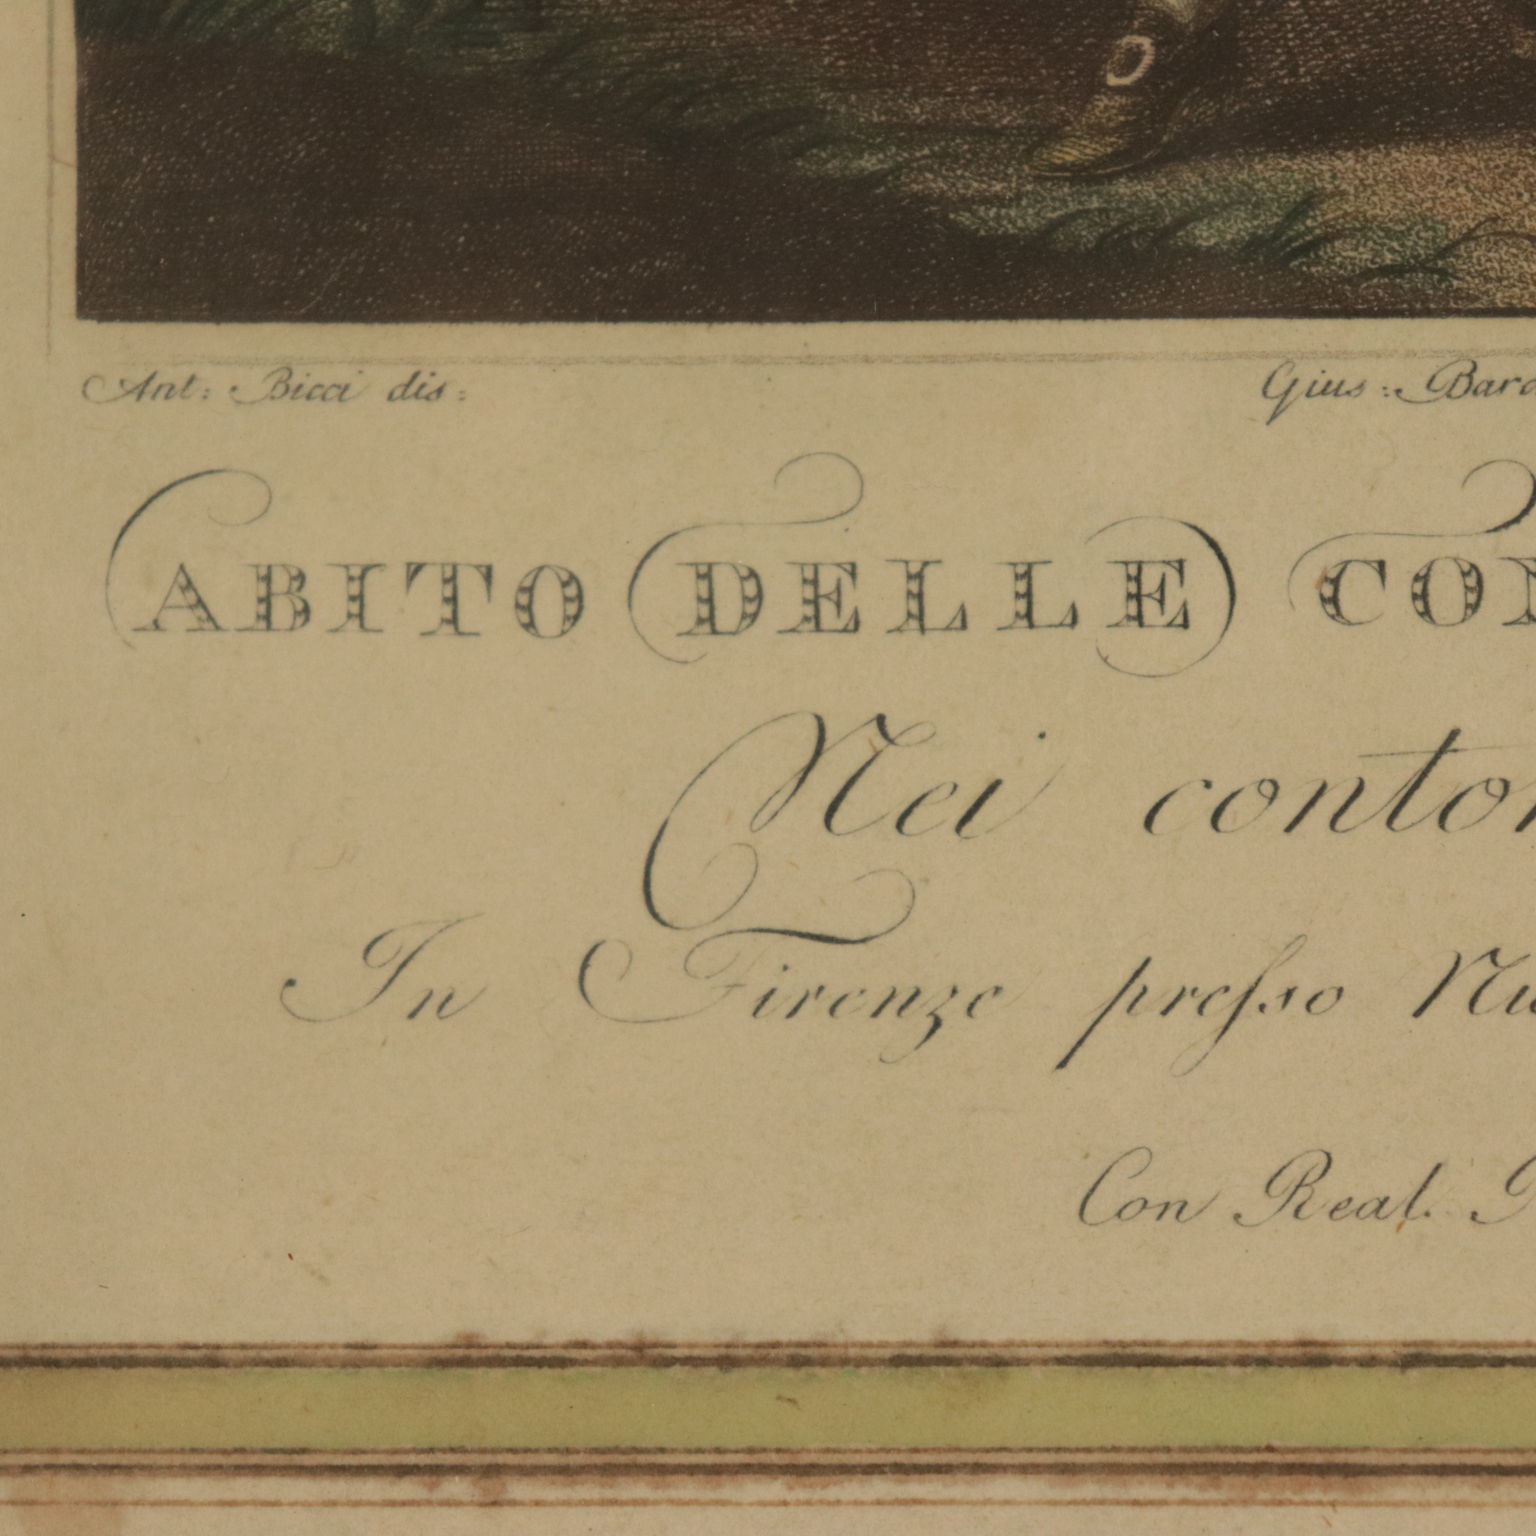 Ant: Bicci dis: Gius: Bard
ABITO DELLE CON
Nei contor
In Firenze presso Nic
Con Real. P